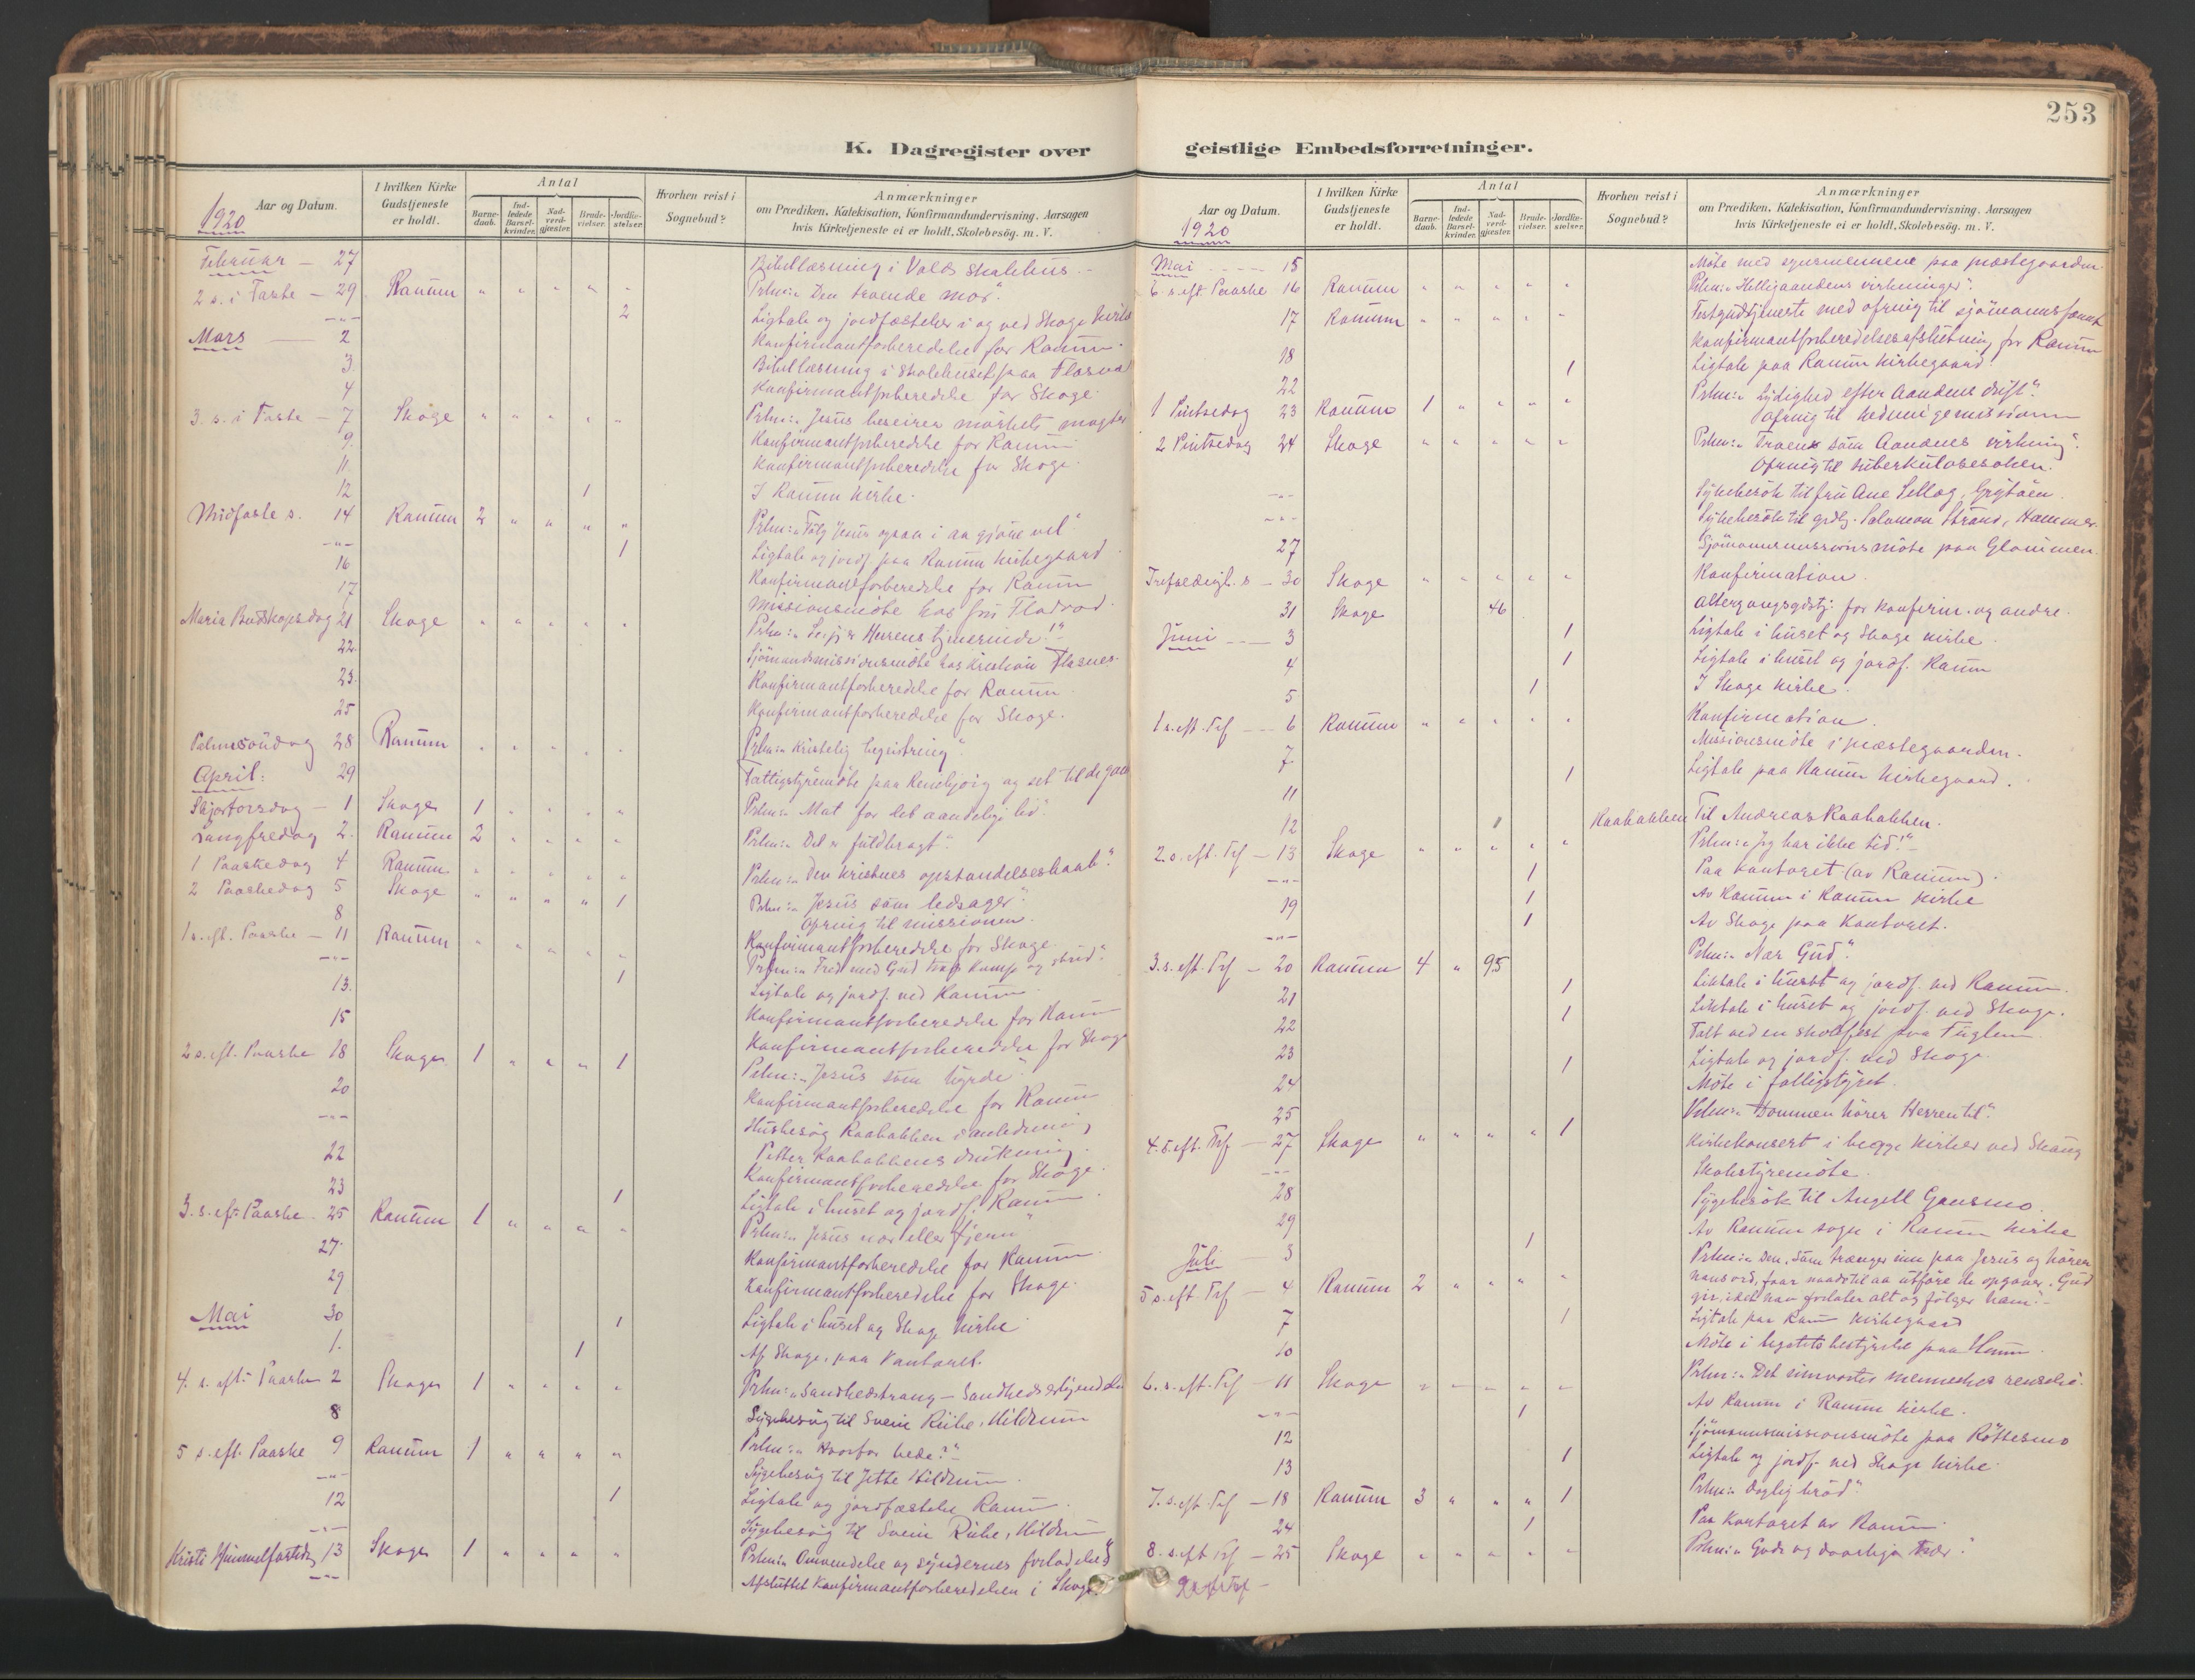 253
K. Dagregister over
geistlige Embedsforretninger.
Aar og Datum.
I hvilken Kirke Gudstjeneste er holdt.
Antal
Barne-daab.
Ind-ledede Barsel-kvinder.
Nad-verd-gjæster.
Brude-vielser.
Jordfæ-stelser.
Hvorhen reist i Sognebud?
Anmærkninger
om Prædiken, Katekisation, Konfirmandundervisning, Aarsagen
hvis Kirketjeneste ei er holdt, Skolebesög. m. V.
1920
Februar — 27 Bibellæsning i Valds skolehus.
2 s. i Faste — 29 Ranum " " " " " Prkn: "Den troende mor".
—"— 2 Ligtale og jordfæstelser i og ved Skage kirke
Mars — 2 Konfirmantforberedelse for Ranum.
3. Bibellæsning i skolehuset paa Flasnes
4 Konfirmantforberedelse for Skage.
3. s. i Faste — 7 Skage " " " " " Prkn: "Jesus beseirer mørkets magter
9. Konfirmantforberedelse for Ranum
11 Konfirmantforberedelse for Skage.
12 1 I Ranum kirke.
Midfaste s. 14 Ranum 2 " " " " Prkn: "Følg Jesus ogsaa i aa gjøre vel".
—"— 1 Ligtale og jordf. paa Ranum kirkegaard.
16 Konfirmantforberedelse for Ranum
17 Missionsmöte hos fru Fladvad.
Maria Budskapsdag 21 Skage " " " " " Prkn: "Se, jeg er Herrens tjenerinde!"
22 Sjömandsmissionsmöte hos Kristian Flasnes.
23. Konfirmantforberedelse for Ranum.
25 Konfirmantforberedelse for Skage.
Palmesöndag 28 Ranum " " " " " Prkn: "Kristelig begeistring".
April: 29 Fattigstyremöte paa Ranebjörg og set til de gam
Skjærtorsdag — 1 Skage 1 " " " " Prkn: "Mat for det aandelige liv".
Langfredag 2. Ranum 2 " " " " Prkn: "Det er fuldbragt".
1 Paaskedag 4 Ranum " " " " " Prkn: "Den kristnes opstandelseshaab".
2 Paaskedag 5 Skage " " " " 1 Prkn: "Jesus som ledsager".
Ofring til missionen.
8 Konfirmantforberedelse for Skage.
1 s. eft. Paaske — 11 Ranum " " " " " Prkn: "Fred med Gud trods kamp og strid".
—"— 1 Ligtale og jordf. ved Ranum
13. Konfirmantforberedelse for Ranum
15 Konfirmantforberedelse for Skage
2 s. eft. Paaske 18 Skage 1 " " " 1 Prkn: "Jesus som hyrde".
20 Konfirmantforberedelse for Ranum
—"— Husbesøg Raabakken i anledning
Petter Raabakkens drukning.
22 Konfirmantforberedelse for Skage.
23 1 Ligtale i huset og jordf. Ranum.
3. s. eft. Paaske 25 Ranum 1 " " " " Prkn: "Jesus nær eller fjern"
27. Konfirmantforberedelse for Ranum.
29 Konfirmantforberedelse for Skage.
Mai 30 1 Ligtale i huset og Skage kirke
1. 1 Af Skage, paa kontoret.
4. s. eft. Paaske 2 Skage 1 " " " " Prkn: "Sandhedstrang — Sandhedserkjendelse
8 Sygebesøg til Svein Rühe, Hildrum
5 s. eft. Paaske 9 Ranum 1 " " " " Prkn: "Hvorfor bede?"
—"— Sygebesøg til Jette Hildrum.
12 1 Ligtale og jordfæstelse Ranum.
—"— Sygebesøg til Svein Rühe, Hildrum
Kristi Himmelfartsdag 13 Skage 1 " " " " Prkn: "Omvendelse og syndernes forladelse"
—"— Afsluttet konfirmantforberedelsen i Skage.
Aar og Datum.
I hvilken Kirke Gudstjeneste er holdt.
Antal
Barne-daab.
Ind-ledede Barsel-kvinder.
Nad-verd-gjæster.
Brude-vielser.
Jordfæ-stelser.
Hvorhen reist i Sognebud?
Anmærkninger
om Prædiken, Katekisation, Konfirmandundervisning, Aarsagen
hvis Kirketjeneste ei er holdt, Skolebesög. m. V.
1920
Mai — 15 Möte med synsmennene paa præstegaarden.
6 s. eft. Paaske 16 Ranum " " " " " Prkn: "Helligaandens virkninger".
17 Ranum " " " " " Festgudstjeneste med ofring til sjömannsfond
Konfirmantforberedelsesafslutning for Ranum
18 1 Ligtale paa Ranum kirkegaard.
22
1 Pintsedag 23 Ranum 1 " " " " Prkn: "Lydighed efter Aandens drift".
Ofring til hedningemissionen
2 Pintsedag 24 Skage " " " " " Prkn: "Troen som Aandens virkning".
Ofring til tuberkulosesaken.
—"— Sykebesök til fru Ane Sellæg, Grytöen.
—"— Sykebesök til grdbr. Salomon Strand, Hammer.
27 Sjömannsmissionsmöte paa Glommen.
Trefoldigh. s — 30 Skage " " " " " Konfirmation.
31 Skage 46 Altergangsgdstj. for konfirm. og andre.
Juni — 3 1 Ligtale i huset og Skage kirke.
4 1 Ligtale i huset og jordf. Ranum
5 1 I Skage kirke.
1 s. eft. Tref — 6 Ranum " " " " " Konfirmation.
7 Missionsmöte i præstegaarden.
11 1 Ligtale paa Ranum kirkegaard.
12 1 Raabakken Til Andreas Raabakken.
2. s. eft. Tref — 13 Skage " " " " " Prkn: "Jeg har ikke tid!"
—"— 1 Paa kontoret (av Ranum).
19 1 Av Ranum i Ranum kirke
—"— 1 Av Skage paa kontoret.
3. s. eft. Tref — 20 Ranum 4 " 95 Prkn: "Nær Gud".
21 1 Liktale i huset og jordf. ved Ranum.
22 1 Liktale i huset og jordf. ved Skage.
23 Talt ved en skolefest paa Fuglem
24 1 Ligtale og jordf. ved Skage.
25 Möte i fattigstyret.
4. s. eft. Tref — 27 Skage " " " " 1 Prkn: "Dommen hörer Herren til".
—"— Kirkekonsert i begge kirker ved Skaug
28 Skolestyremöte.
29 Sygebesök til Angell Gansmo.
Juli — 3 1 Av Ranum sogn i Ranum kirke
5 s. eft. Tref — 4 Ranum 2 " " " " Prkn: "Den, som trænger inn paa Jesus og hörer
hans ord, faar naade til aa utföre de opgaver, Gud
gir, idet han forlater alt og fölger ham".
7 1 Ligtale paa Ranum kirkegaard
10 Möte i legatsbestyrelse paa Hunn.
6. s. eft. Tref — 11 Skage " " " " " Prkn: "Det menneskes renselse".
—"— 1 Av Ranum i Ranum kirke.
12 Sjömannsmissionsmöte paa Röttesmo
13 1 Ligtale og jordf. ved Skage kirke.
7. s. eft. Tref — 18 Ranum 3 " " " 1 Prkn: "Daglig bröd".
24 1 Paa kontoret av Ranum.
8. s. eft Tref — 25 Skage " " " " " Prkn: "Gode og daarlige trær".
9 s eft Tref —